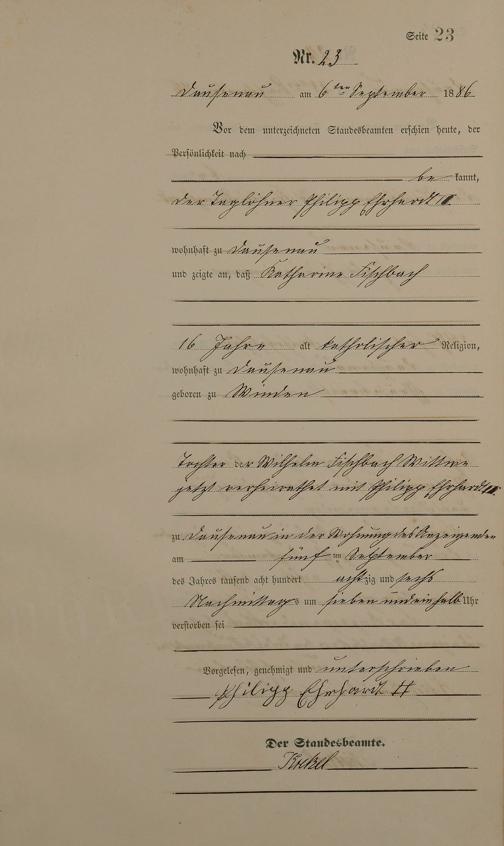 Seite 23
Nr. 23
Dausenau am 6ten September 1886
Vor dem unterzeichneten Standesbeamten erschien heute, der
Persönlichkeit nach
be kannt,
der Taglöhner Philipp Ehrhardt II.
wohnhaft zu Dausenau
und zeigte an, daß Katharine Fischbach
16 Jahre alt katholischer Religion,
wohnhaft zu Dausenau
geboren zu Winden
Tochter der Wilhelm Fischbach Wittwe
jetzt verheirathet mit Philipp Ehrhardt II.
zu Dausenau in der Wohnung des Anzeigenden
am fünf ten September
des Jahres tausend acht hundert achtzig und sechs
Nachmittags um sieben und ein halb Uhr
verstorben sei
Vorgelesen, genehmigt und unterschrieben
Philipp Ehrhardt II
Der Standesbeamte.